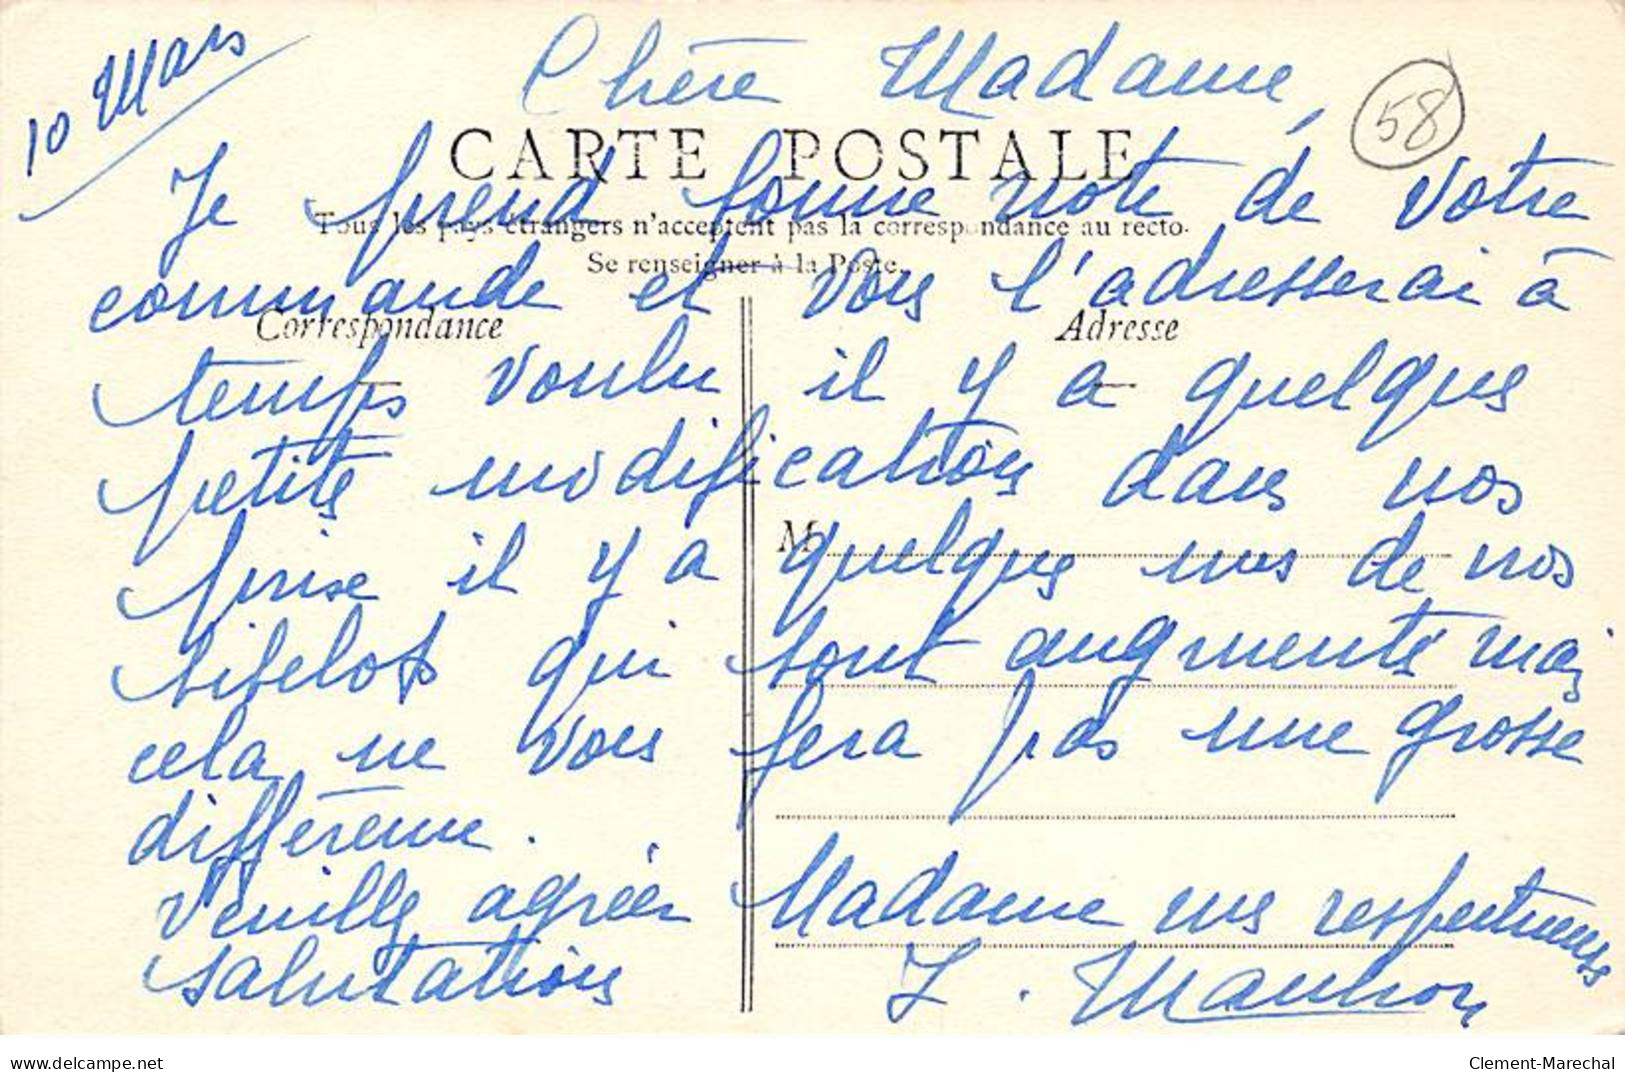 10 Mars
Chère Madame,
58
CARTE POSTALE
Je prend bonne note de votre
Tous les pays étrangers n'acceptent pas la correspondance au recto.
Se renseigner à la Poste.
commande et vous l'adresserai à
Correspondance
Adresse
temps voulu il y a quelques
petites modifications dans nos
M
prise il y a quelques unes de nos
bibelots qui sont augmenté mais
cela ne vous fera pas une grosse
différence.
Veuillez agréer Madame mes respectueuses
salutations
delcampe.net
Clement-Marechal